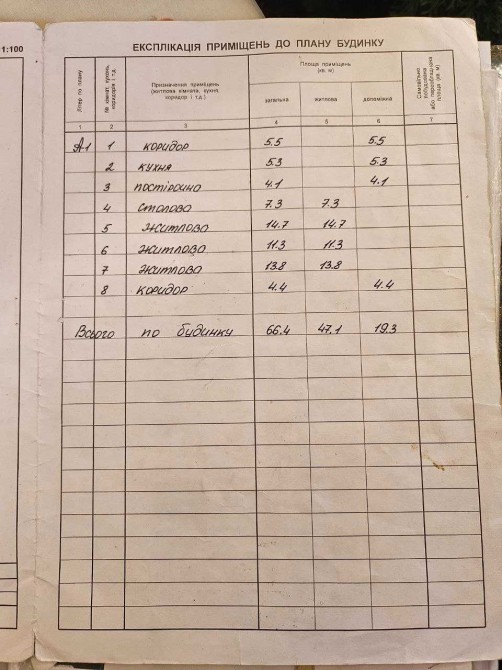 1:100
ЕКСПЛІКАЦІЯ ПРИМІЩЕНЬ ДО ПЛАНУ БУДИНКУ
Літер по плану
№ кімнат, кухонь, коридорів і т.д.
Призначення приміщень
(житлова кімната, кухня,
коридор і т.д.)
Площа приміщень
(кв. м)
загальна житлова допоміжна
Самовільно
побудована
або переобладнана
площа (кв. м)
1 2 3 4 5 6 7
А1 1 коридор 5.5 5.5
2 кухня 5.3 5.3
3 постірочна 4.1 4.1
4 столова 7.3 7.3
5 житлова 14.7 14.7
6 житлова 11.3 11.3
7 житлова 13.8 13.8
8 коридор 4.4 4.4
Всього по будинку 66.4 47.1 19.3